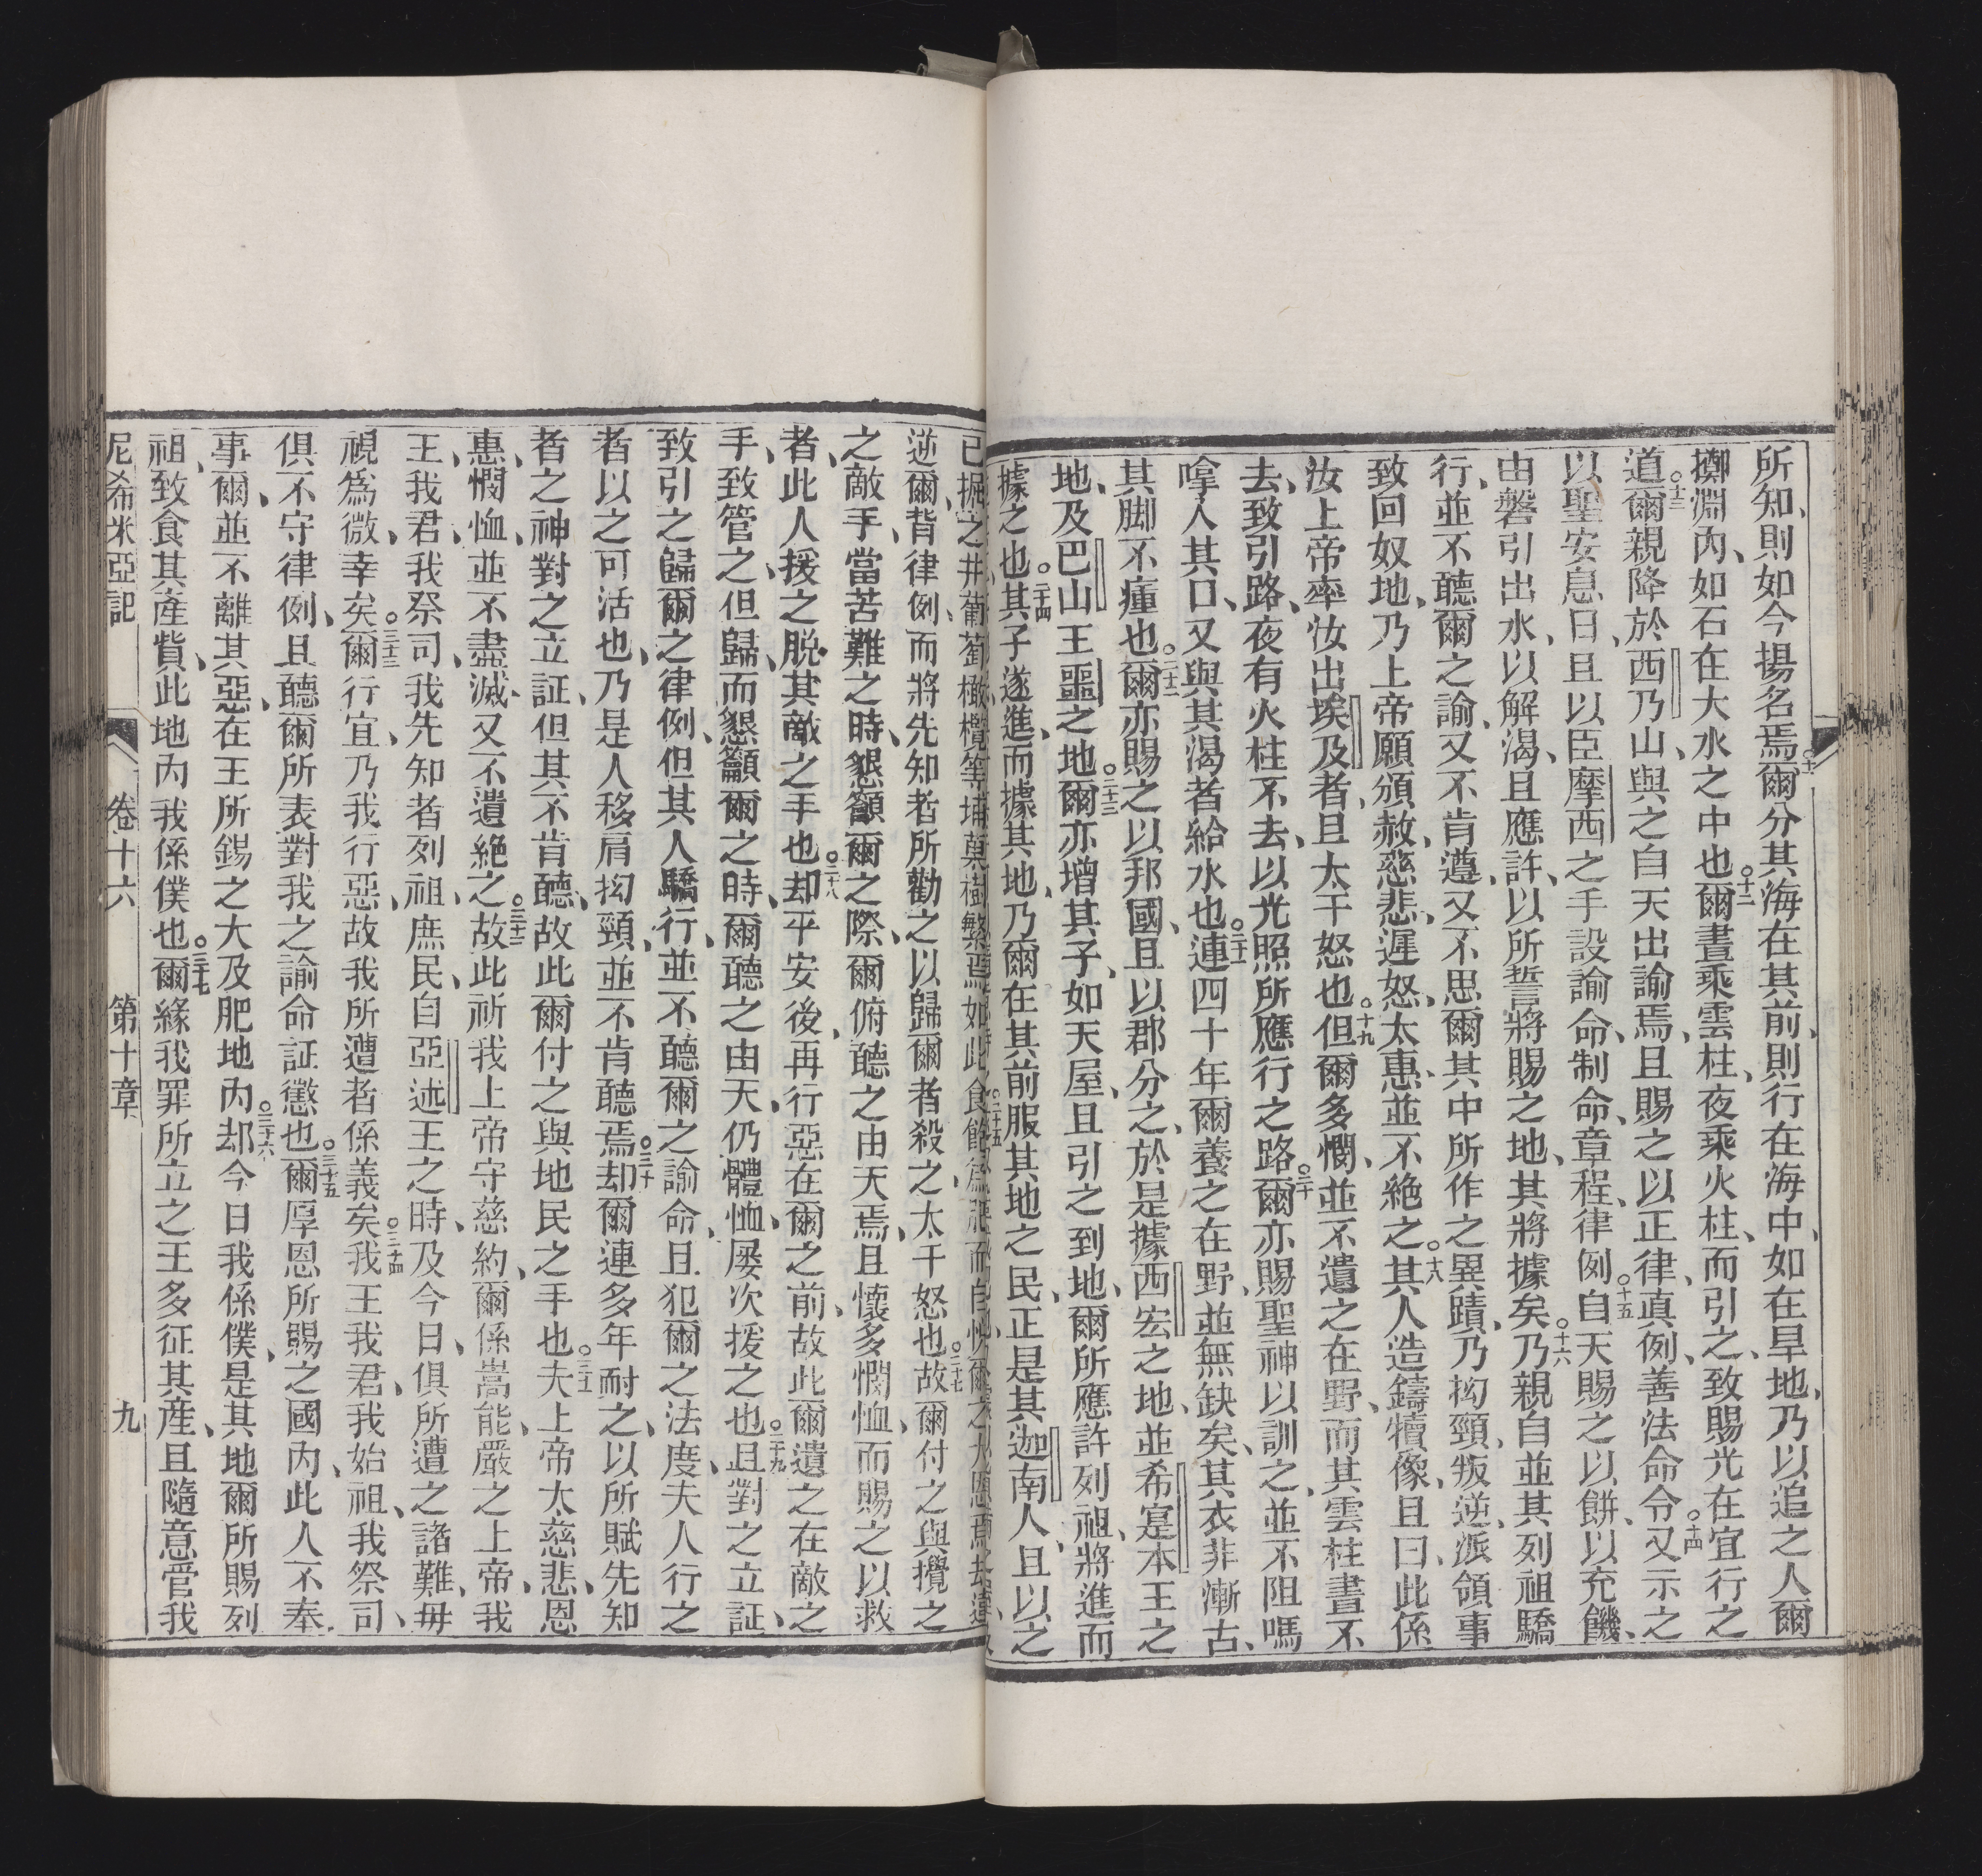 所知、則如今揚名焉○十一爾分其海在其前、則行在海中、如在旱地、乃以追之人爾
擲淵內、如石在大水之中也○十二爾晝乘雲柱、夜乘火柱、而引之、致賜光在宜行之
道○十三爾親降於西乃山、與之自天出諭焉、且賜之以正律、真例、善法命令○十四又示之
以聖安息日、且以臣摩西之手設諭命、制命、章程、律例○十五自天賜之以餅、以充饑、
由磐引出水、以解渴、且應許、以所誓將賜之地、其將據矣○十六乃親自並其列祖驕
行、並不聽爾之諭、又不肯遵、又不思爾其中所作之異蹟、乃抝頸、叛逆、派領事
致回奴地、乃上帝願頒赦、慈悲、遲怒、太惠、並不絕之○十八其人造鑄犢像、且曰、此係
汝上帝率汝出埃及者、且太干怒也○十九但爾多憫、並不遺之在野、而其雲柱晝不
去、致引路、夜有火柱不去、以光照所應行之路○二十爾亦賜聖神以訓之、並不阻嗎
嗱人其口、又與其渴者給水也○二十一連四十年爾養之在野、並無缺矣、其衣非漸古、
其脚不瘇也○二十二爾亦賜之以邦國、且以郡分之、於是據西宏之地、並希寔本王之
地、及巴山王噩之地○二十三爾亦增其子、如天屋、且引之到地、爾所應許列祖、將進而
據之也○二十四其子遂進、而據其地、乃爾在其前服其地之民、正是其迦南人、且以之
已掘之井葡萄橄欖等埔菓樹繁焉如此食飽
逆爾、背律例、而將先知者所勸之以歸爾者殺之、太干怒也○二十七故爾付之與攪之
之敵手、當苦難之時、懇籲爾之際、爾俯聽之由天焉、且懷多憫恤、而賜之以救
者、此人援之脫其敵之手也○二十八却平安後、再行惡在爾之前、故此爾遺之在敵之
手、致管之、但歸、而懇籲爾之時、爾聽之由天、仍體恤、屢次援之也○二十九且對之立証、
致引之歸爾之律例、但其人驕行、並不聽爾之諭命、且犯爾之法度、夫人行之
者以之可活也、乃是人移肩抝頸、並不肯聽焉○三十却爾連多年耐之、以所賦先知
者之神對之立証、但其不肯聽、故此爾付之與地民之手也○三十一夫上帝太慈悲、恩
惠、憫恤、並不盡滅、又不遺絕之○三十二故此祈我上帝守慈約、爾係嵩能嚴之上帝、我
王、我君、我祭司、我先知者、列祖、庶民、自亞述王之時、及今日、俱所遭之諸難、毋
視爲微、幸矣○三十三爾行宜、乃我行惡、故我所遭者係義矣○三十四我王、我君、我始祖、我祭司、
俱不守律例、且聽爾所表對我之諭命証懲也○三十五爾厚恩所賜之國內、此人不奉
事爾、並不離其惡、在王所錫之大及肥地內○三十六却今日我係僕、是其地爾所賜列
祖、致食其產貲、此地內我係僕也○三十七爾緣我罪所立之王多征其産、且隨意管我
尼希米亞記 卷十六 第十章 九